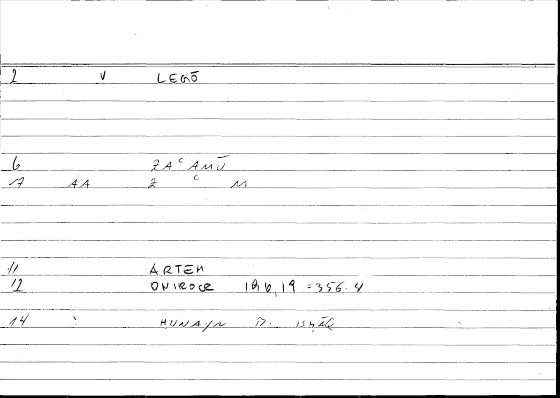 2 V LEGŌ
6 ZAᶜAMŪ
7 AA Z ᶜ M
11 ARTEM
12 ONIROCR 196,19 = 356.4
14 : HUNAYN B. ISḤĀQ